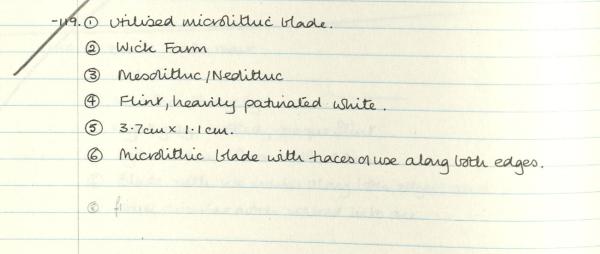 -119. ① Utilised microlithic blade.
② Wick Farm
③ Mesolithic/Neolithic
④ Flint, heavily patinated white.
⑤ 3.7cm x 1.1cm.
⑥ Microlithic blade with traces of use along both edges.